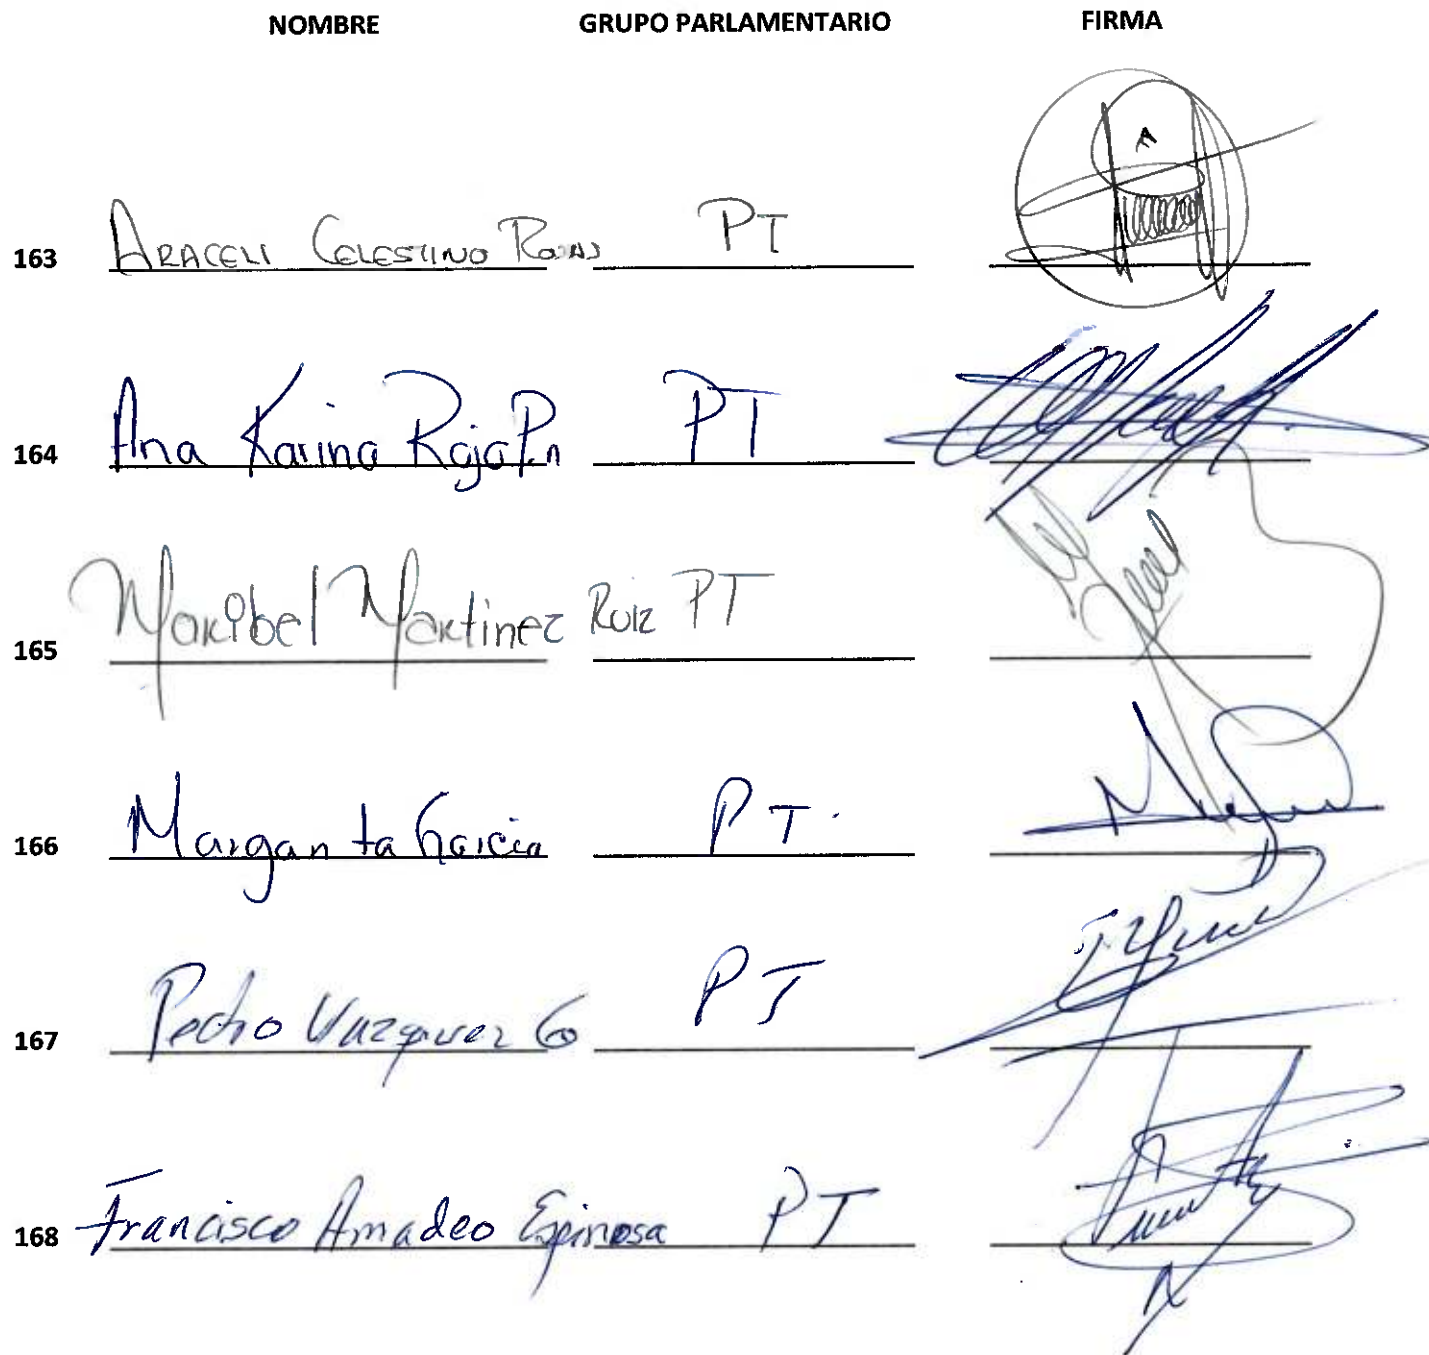 NOMBRE GRUPO PARLAMENTARIO FIRMA
163 ARACELI CELESTINO ROSAS PT
164 Ana Karina Rojo P.n PT
165 Maribel Martinez Ruiz PT
166 Margarita Garcia PT.
167 Pedro Vazquez G PT
168 Francisco Amadeo Espinosa PT